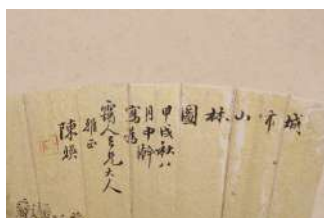 城市山林圖
甲戌秋八
月中澣
寫為
靄人三兄大人
雅正
陳煐